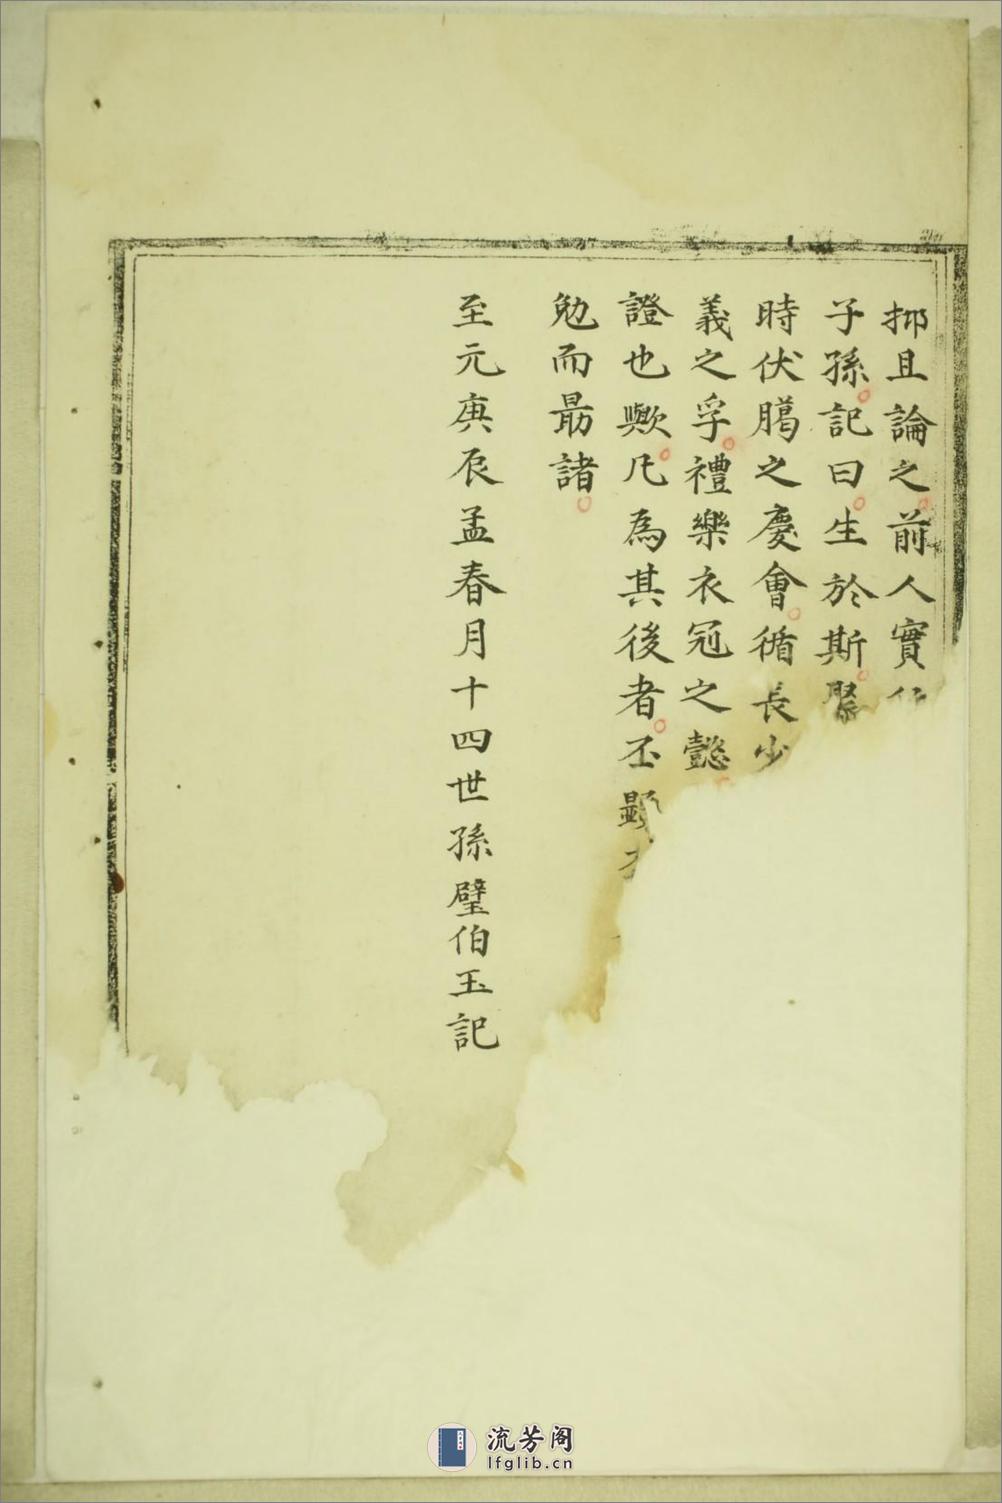 抑且論之前人實
子孫記曰生於斯聚
時伏臈之慶會循長少
義之孚禮樂衣冠之懿
證也歟凡為其後者丕顯
勉而最諸
至元庚辰孟春月十四世孫璧伯玉記
流芳阁
lfglib.cn